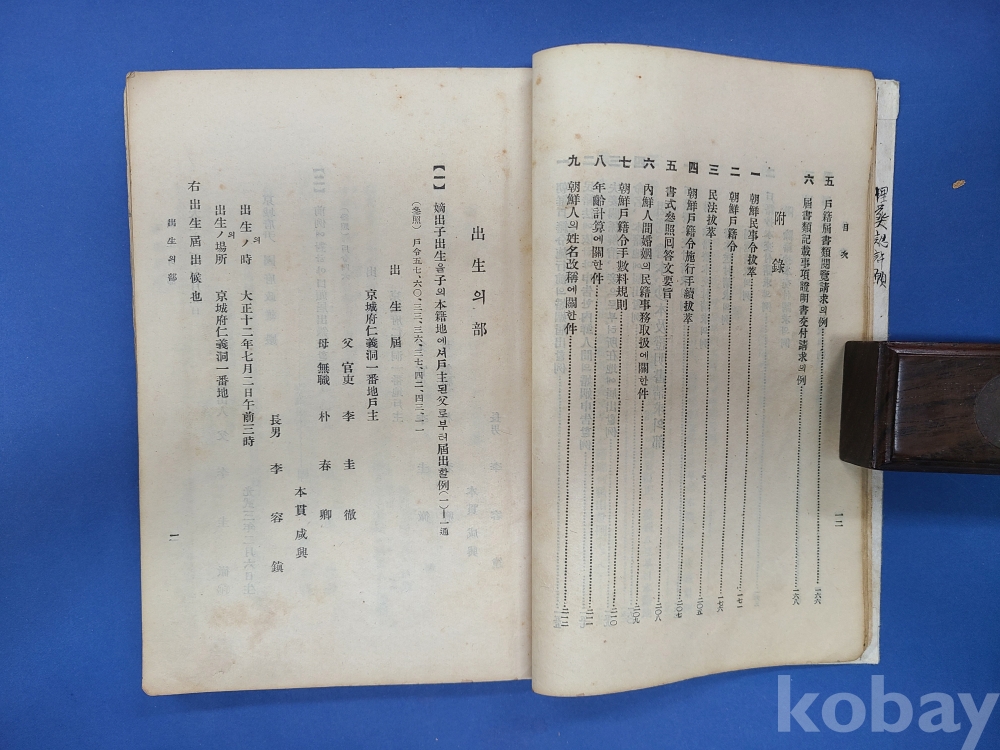 目次
五 戶籍屆書類閱覽請求의例 一六六
六 屆書類記載事項證明書交付請求의例 一六八
附錄
一 朝鮮民事令拔萃 一七一
二 朝鮮戶籍令 一七六
三 民法拔萃 二〇五
四 朝鮮戶籍令施行手續拔萃 二〇七
五 書式參照回答文要旨 二〇八
六 內鮮人間婚姻의民籍事務取扱에關한件 二〇九
七 朝鮮戶籍令手數料規則 二一〇
八 年齡計算에關한件 二一一
九 朝鮮人의姓名改稱에關한件 二一二
一二
出生의部
【一】 嫡出子出生을子의本籍地에셔戶主된父로부터屆出할例(一)—一通
(參照) 戶令五七、六〇、三三、三六、三七、四二、四三、二一
出生屆
京城府仁義洞一番地戶主
父 官吏 李圭徹
母 無職 朴春卿
本貫咸興
長男 李容鎭
出生ノ의時 大正十二年七月二日午前三時
出生ノ의場所 京城府仁義洞一番地
右出生屆出候也
出生의部
一
kobay